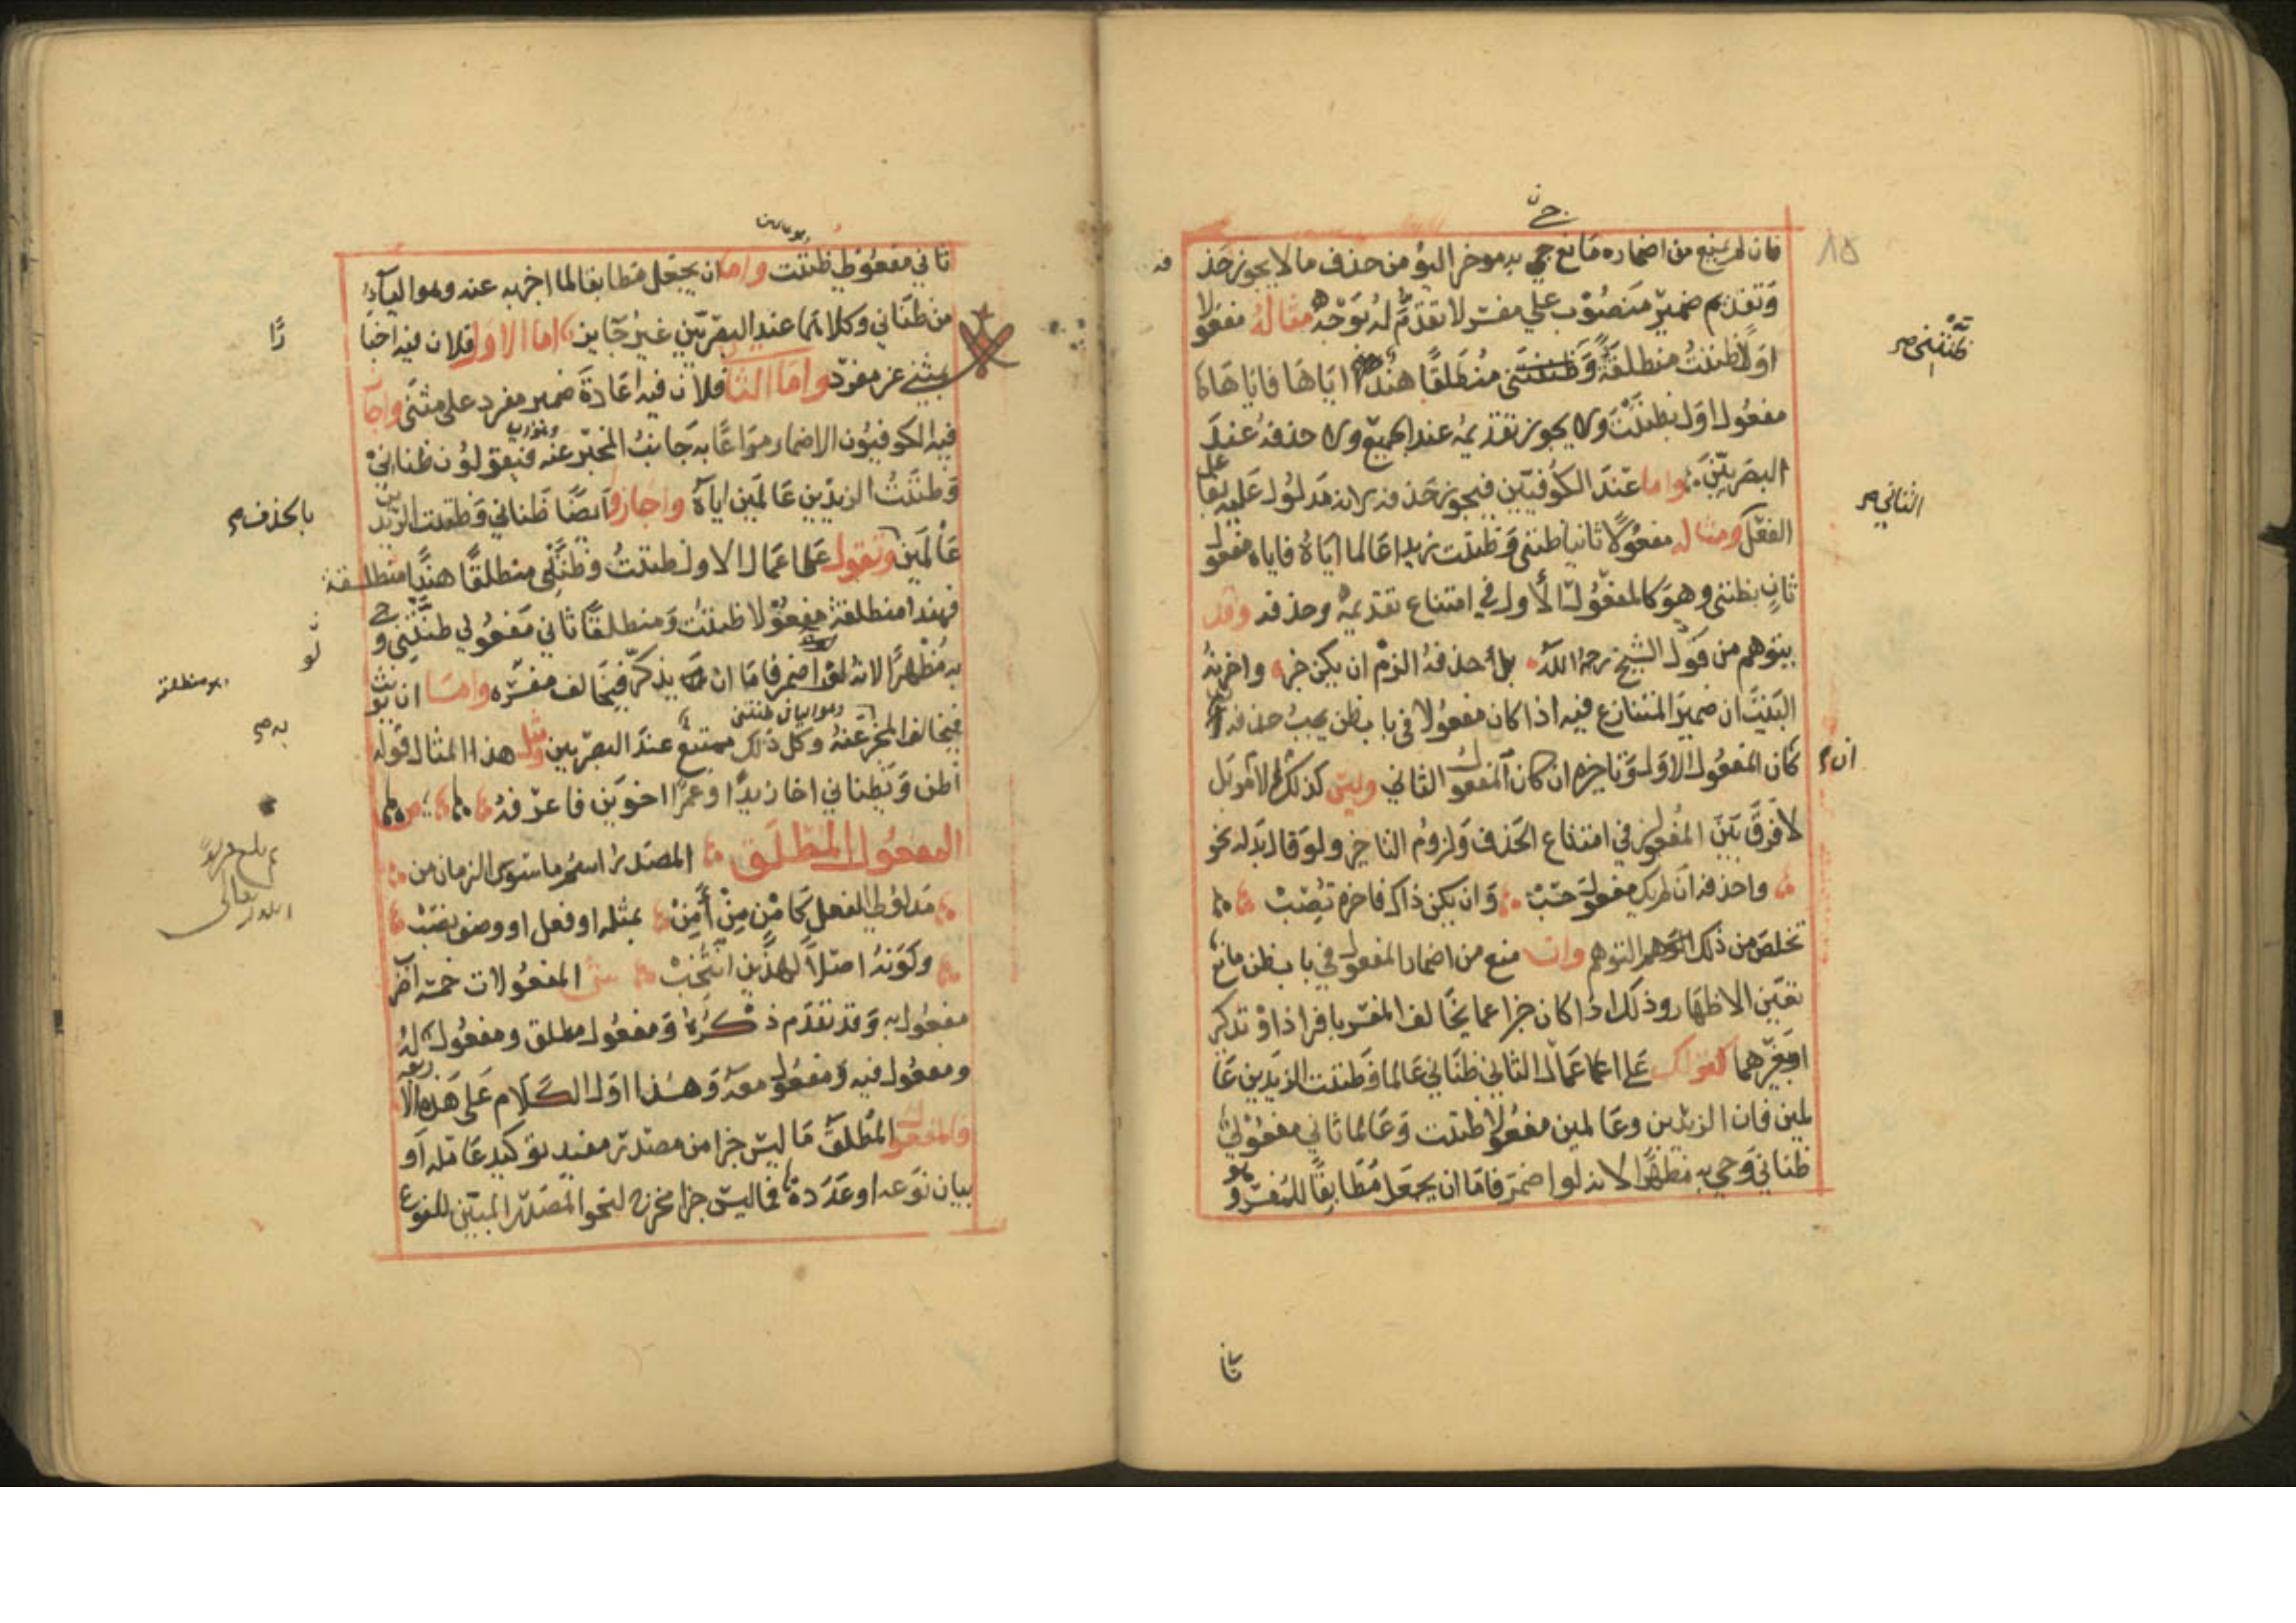 فان لم يمنع من اضماره مانع جي به موخرا ليؤمن حذف ما لا يجوز حذ
فه
وتقديم ضمير منصوب على مفسر لا تقدم له بوجه مثاله مفعولا
اولا ظننت منطلقة وظننتني منطلقا هند اياها فاياها
مفعول اول لظننت ولا يجوز تقديمه عند الجميع ولا حذفه عند
البصريين واما عند الكوفيين فيجوز حذفه لانه مدلول عليه بفاعل
الفعل ومثاله مفعولا ثانيا ظنني وظننت زيدا عالما اياه فاياه مفعول
ثان بظنني وهو كالمفعول الأول في امتناع تقديمه وحذفه وقد
يتوهم من قول الشيخ رحمه الله بل أحذفه الزم ان يكن خبر واخرنه
البيت ان ضمير المتنازع فيه اذا كان مفعولا في باب ظن يجب حذفه
كان المفعول الاول وتاخيره ان كان المفعول الثاني وليس كذلك لامر بل
لا فرق بين المفعولين في امتناع الحذف ولزوم التاخير ولو قال بدله نحو
واحذفه ان لم يك مفعول حسب وان يكن ذاك فاخره تصب
تخلص من ذلك التوهم وان منع من اضمار المفعول في باب ظن مانع
تعين الاظهار وذلك اذا كان خبرا عما يخالف المفسر بافراد او تذكير
او بغيرهما كقولك على اعمال الثاني ظناني عالما وظننت الزيدين عا
لمين فان الزيدين وعالمين مفعولا ظننت وعالما ثاني مفعولي
ظناني وجي به مظهرا لانه لو اضمر فاما ان يجعل مطابقا للمفسر وهو
ظننتني صح
الثاني صح
ان صح
ثا
ثاني مفعولي ظننت واما ان يجعل مطابقا لما اخبر به عنه وهو الياء
من ظناني وكلاهما عند البصريين غير جايز اما الاول فلان فيه اخبا
رًا
بمثنى عن مفرد واما الثا فلان فيه اعادة ضمير مفرد على مثنى واجاز
فيه الكوفيون الاضمار مراعا به جانب المخبر عنه فيقولون ظناني
وظننت الزيدين عالمين اياه واجازوا أيضا ظناني وظننت الزيدين
بالحذف صح
عالمين وتقول على اعمال الاول ظننت وظنتني منطلقا هندا منطلقة
فهندا منطلقة مفعولا ظننت ومنطلقا ثاني مفعولي ظنتني وجي
به مظهرا لانه لو اضمر فاما ان يذكر فيخالف مفسره واما ان يونث
وهو منطلقة
به صح
فيخالف المخبر عنه وكل ذلك ممتنع عند البصريين ومثل هذا المثال قوله
أظن ويظناني اخا زيدا وعمرا اخوين فاعرفه
المفعول المطلق المصدر اسم ما سوى الزمان من
مدلولي الفعل كأمن من أمن بمثله او فعل او وصف نصب
وكونه اصلا لهذين انتخب ش المفعولات خمسة اضر
مفعول به وقد تقدم ذكره ومفعول مطلق ومفعول له
ومفعول فيه ومفعول معه وهذا اول الكلام على هذه الاربعة
فالمفعول المطلق ما ليس خبرا من مصدر مفيد توكيد عامله او
بيان نوعه او عدده فما ليس خبرا مخرج لنحو المصدر المبين للنوع